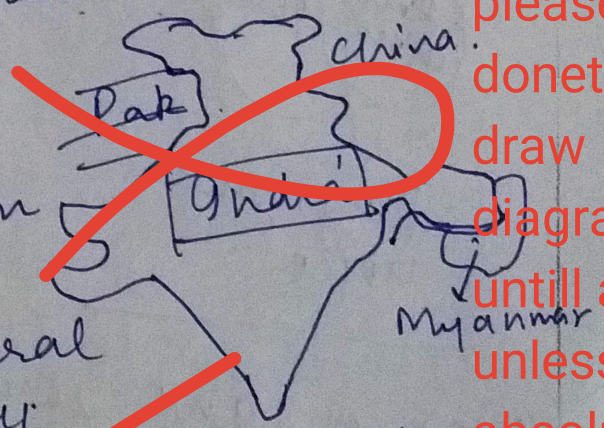 China.
Pak
India
Myanmar
eral
please
donet
draw
diagra
untill a
unless